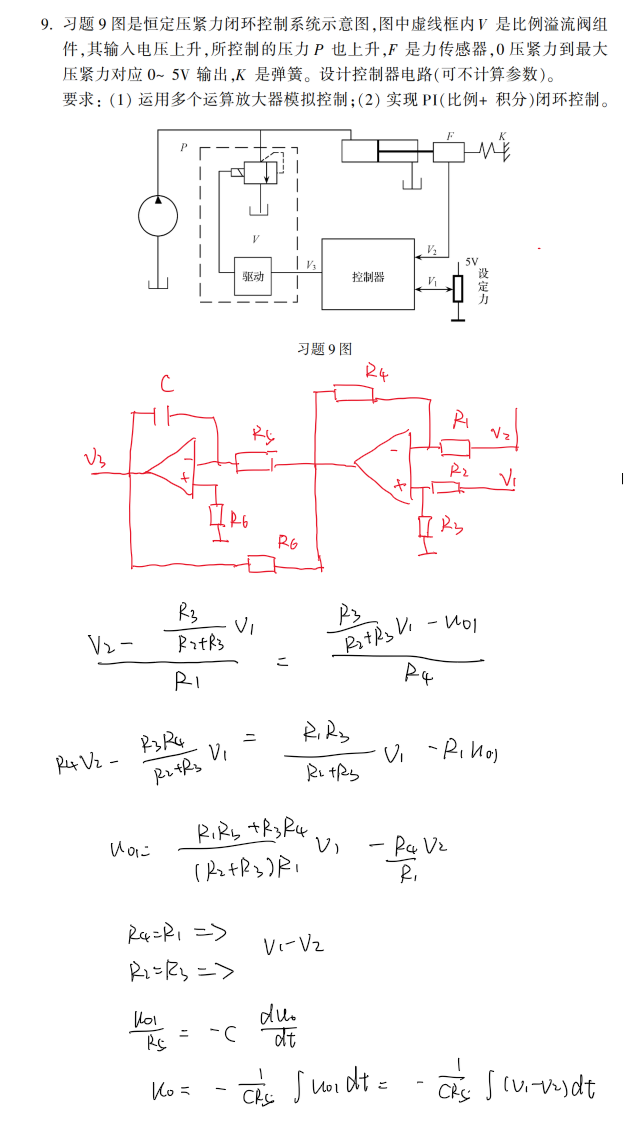 9. 习题 9 图是恒定压紧力闭环控制系统示意图,图中虚线框内 V 是比例溢流阀组
件,其输入电压上升,所控制的压力 P 也上升,F 是力传感器,0 压紧力到最大
压紧力对应 0~ 5V 输出,K 是弹簧。设计控制器电路(可不计算参数)。
要求: (1) 运用多个运算放大器模拟控制;(2) 实现 PI(比例+ 积分)闭环控制。
P
F
K
V
驱动
V₃
控制器
V₂
V₁
5V
设定力
习题 9 图
R₄
C
R₁
V₂
R₅
R₂
V₁
V₃
-
+
-
+
R₆
R₃
R₆
(V₂ - R₃/(R₂+R₃) V₁)/R₁ = (R₃/(R₂+R₃) V₁ - u₀₁)/R₄
R₄V₂ - R₃R₄/(R₂+R₃) V₁ = R₁R₃/(R₂+R₃) V₁ - R₁u₀₁
u₀₁= (R₁R₃+R₃R₄)/((R₂+R₃)R₁) V₁ - R₄/R₁ V₂
R₄=R₁ => V₁-V₂
R₂=R₃ =>
u₀₁/R₅ = -C du₀/dt
u₀ = - 1/(CR₅) ∫u₀₁dt = - 1/(CR₅) ∫(V₁-V₂)dt